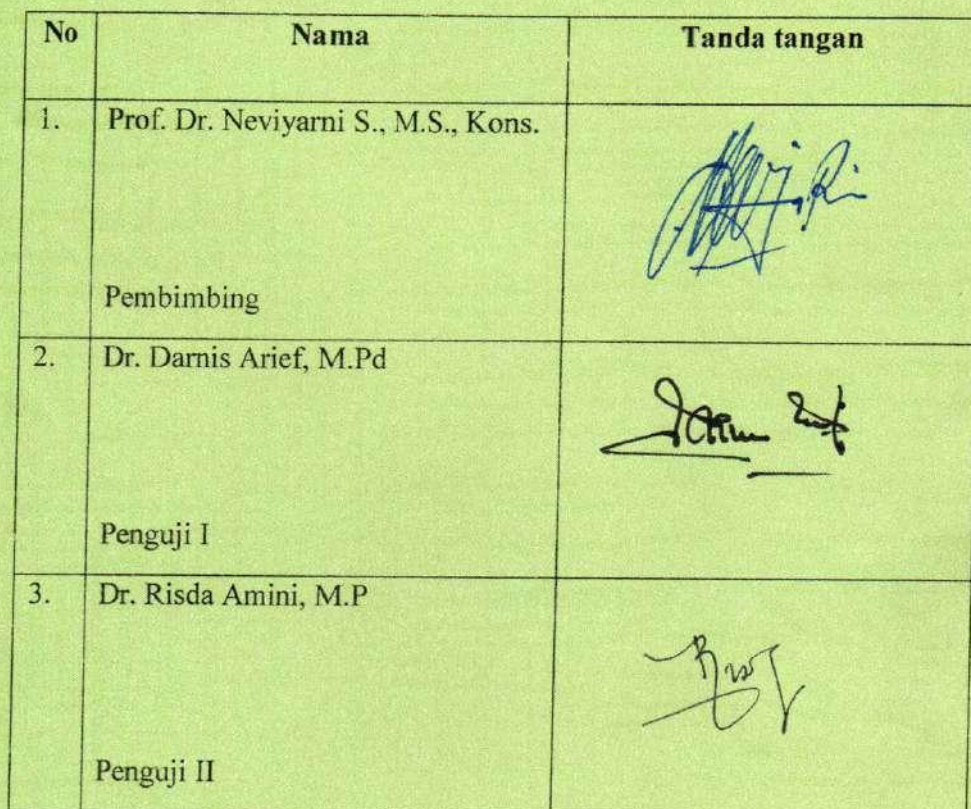 No Nama Tanda tangan
1. Prof. Dr. Neviyarni S., M.S., Kons.
Pembimbing
2. Dr. Darnis Arief, M.Pd
Penguji I
3. Dr. Risda Amini, M.P
Penguji II